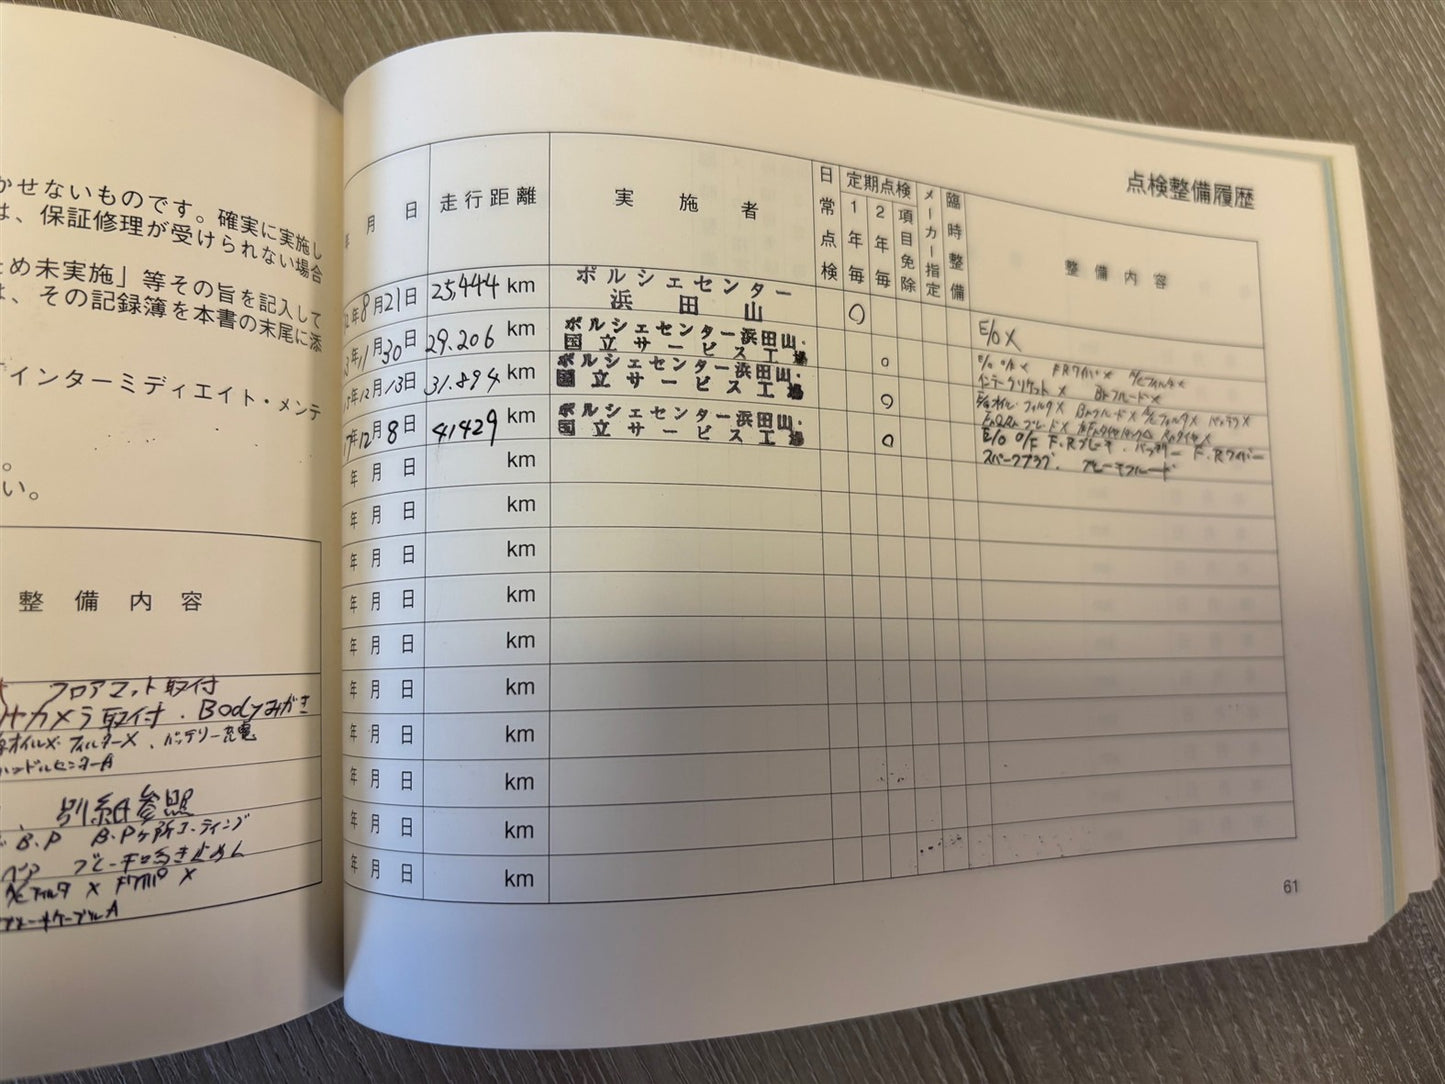 かせないものです。確実に実施し
は、保証修理が受けられない場合
ため未実施」等その旨を記入して
は、その記録簿を本書の末尾に添
インターミディエイト・メンテ
。
い。
整備内容
フロアマット取付
カメラ取付．Bodyみがき
オイルX フィルターX、バッテリー充電
ハンドルセンターA
別紙参照
B.P B.Pヶ所コーティング
ブレーキ鳴き止め
A/Cフィルタ X
ブレーキケーブルA
点検整備履歴
年月日 走行距離 実施者 日常点検 定期点検 1年毎 2年毎 項目免除 メーカー指定 臨時整備 整備内容
2年8月21日 25,444 km ポルシェセンター浜田山 〇 E/O X
3年11月30日 29.206 km ポルシェセンター浜田山・国立サービス工場 〇 E/O O/E X FRワイパ X A/Cフィルタ X
インテークリケット X Bkフルード X
5年12月13日 31.894 km ポルシェセンター浜田山・国立サービス工場 〇 オイル・フィルタX BkフルードX A/CフィルタX バッテリX
7年12月8日 41429 km ポルシェセンター浜田山・国立サービス工場 〇 E/O O/E F.Rブレーキ．バッテリー F.Rワイパー
スパークプラグ．ブレーキフルード
年月日 km
年月日 km
年月日 km
年月日 km
年月日 km
年月日 km
年月日 km
年月日 km
年月日 km
年月日 km
61